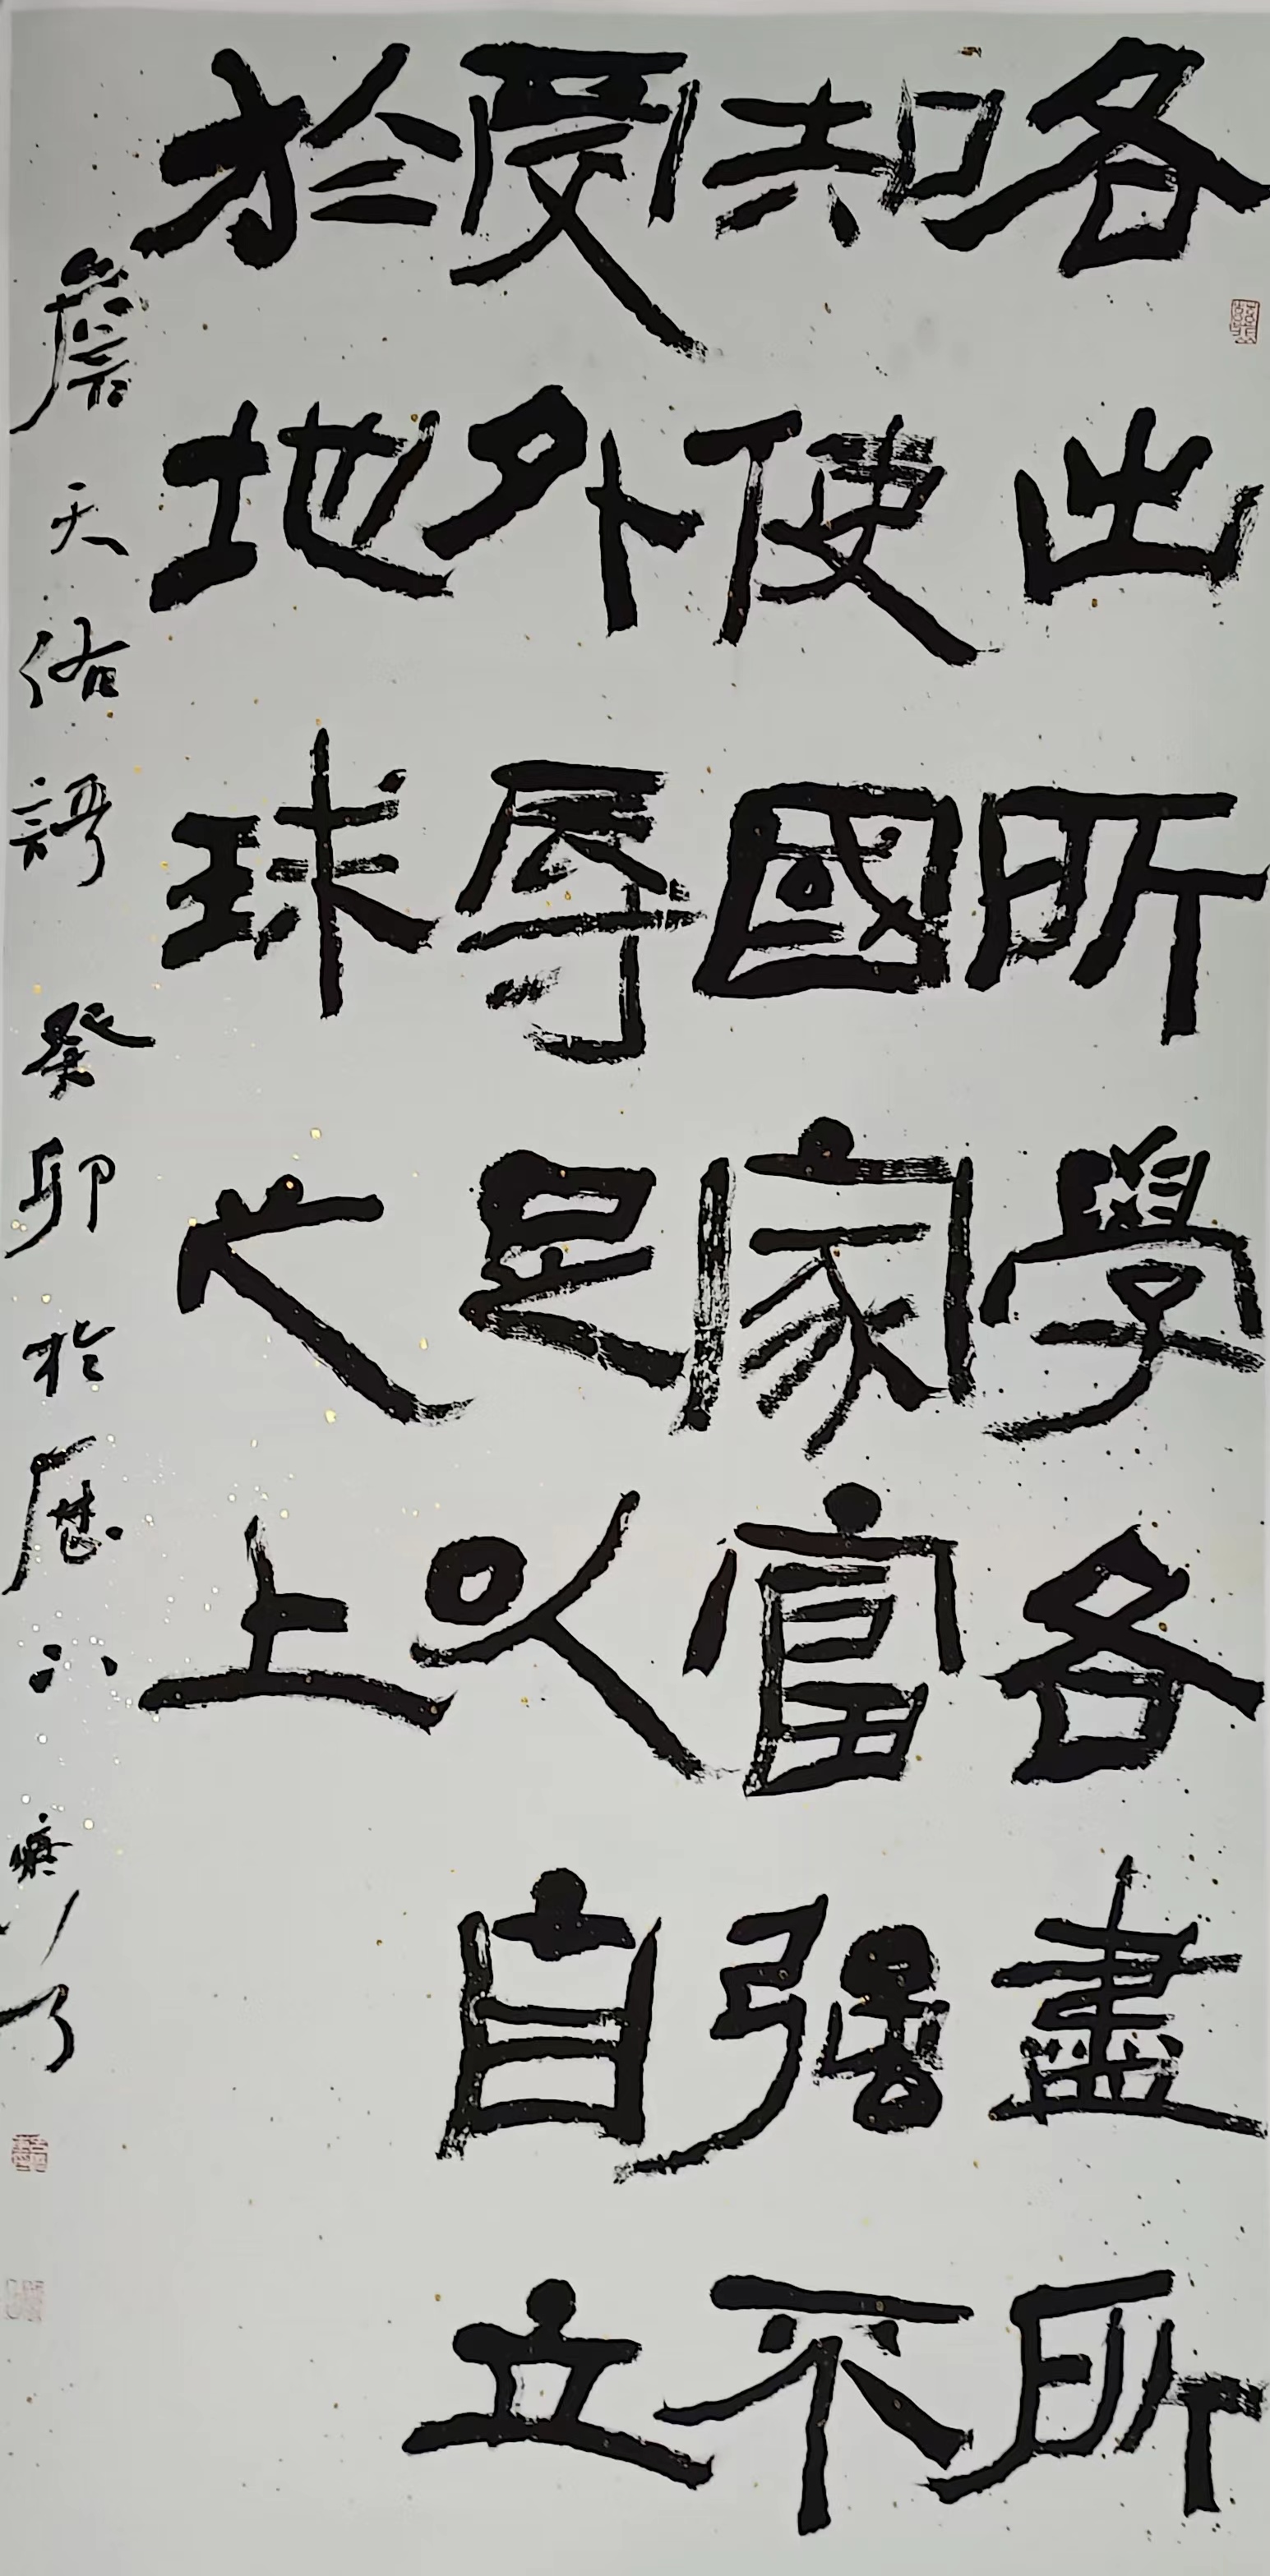 各出所學各盡所
知使國家富強不
受外辱足以自立
於地球之上
詹天佑語 癸卯於歷下